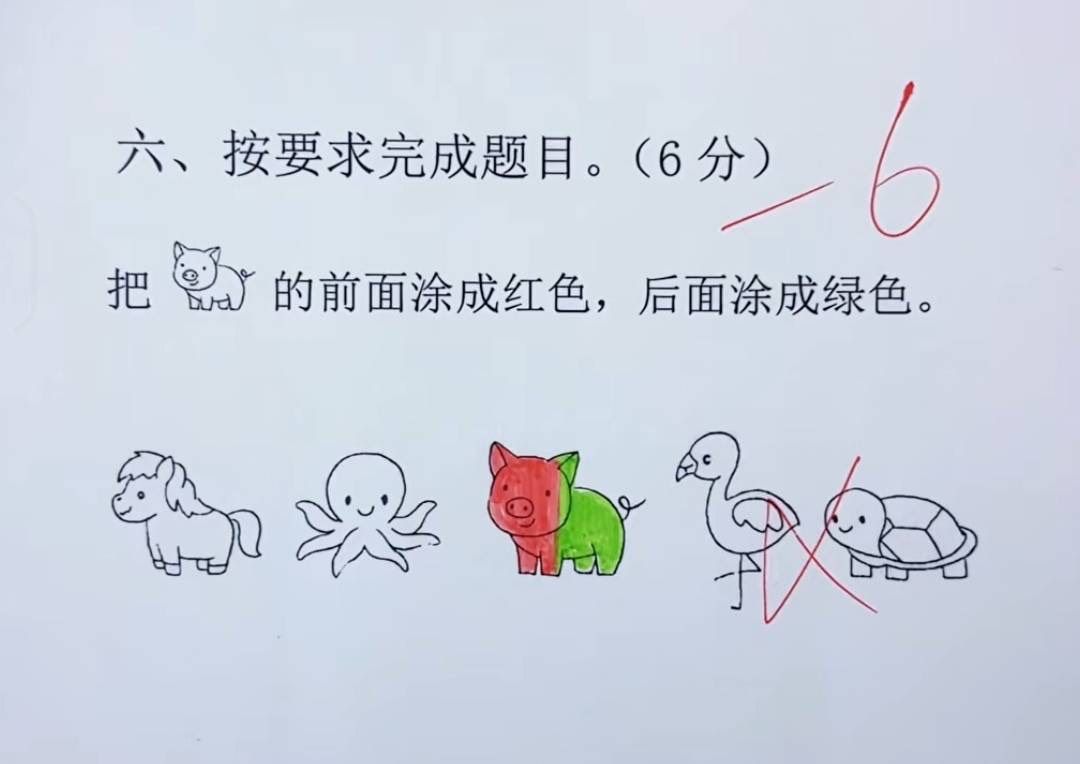 六、按要求完成题目。（6分）
-6
把的前面涂成红色，后面涂成绿色。